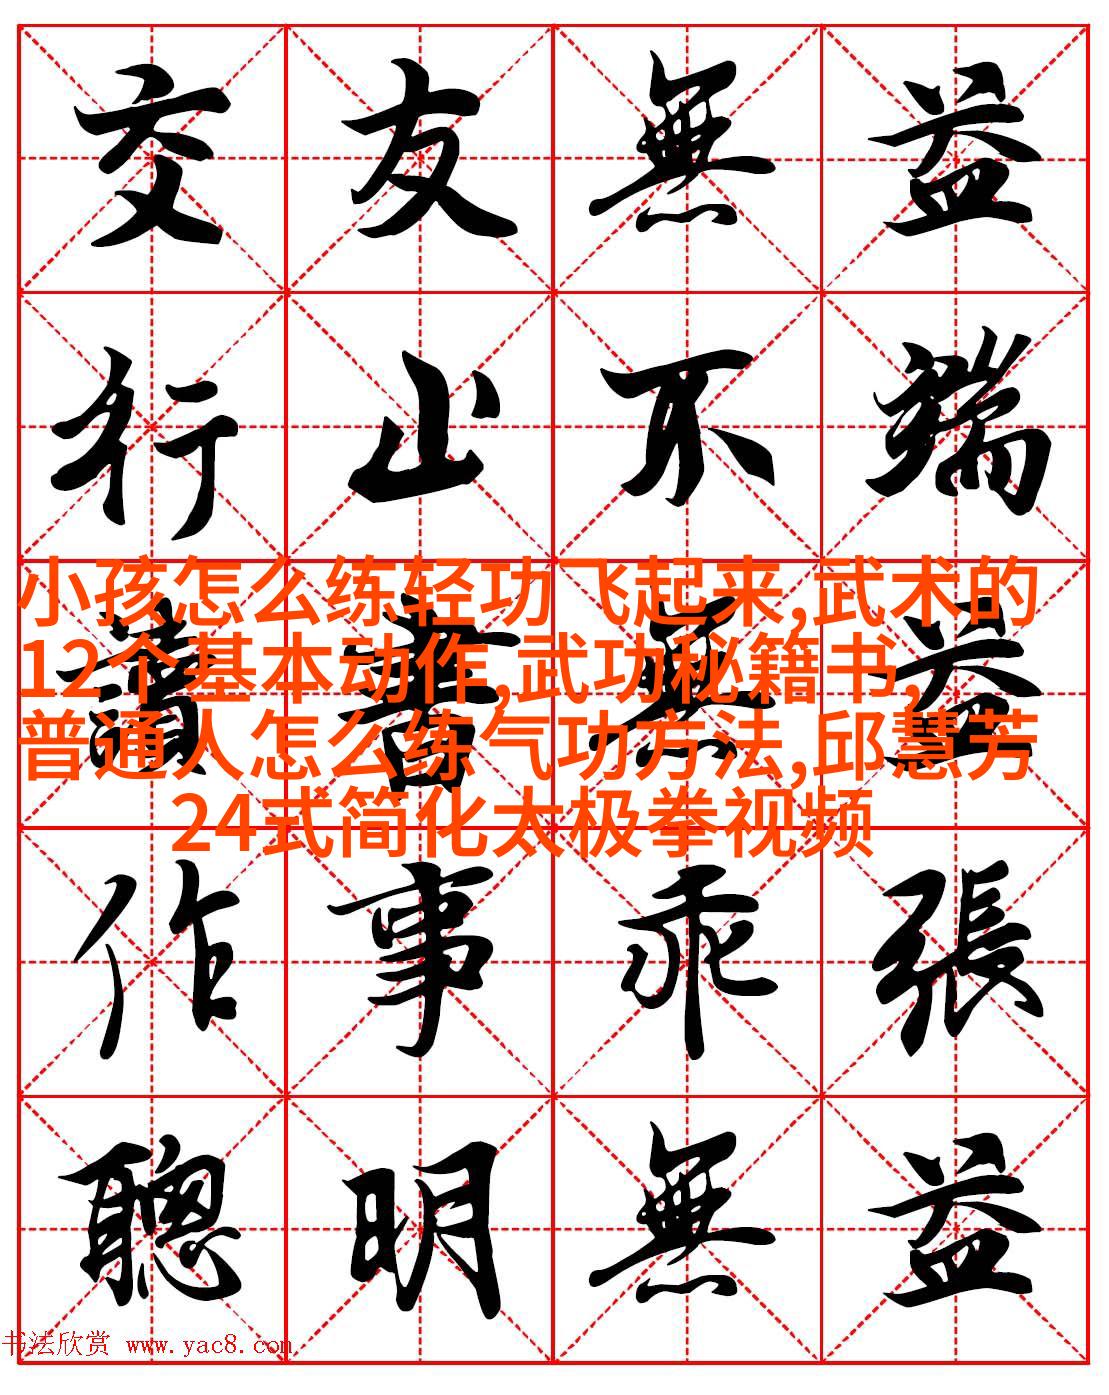 交友無益
行止不端
小孩怎么练轻功飞起来,武术的
12个基本动作,武功秘籍书,
普通人怎么练气功方法,邱慧芳
24式简化太极拳视频
讀書無益
作事乖張
聰明無益
书法欣赏 www.yac8.com